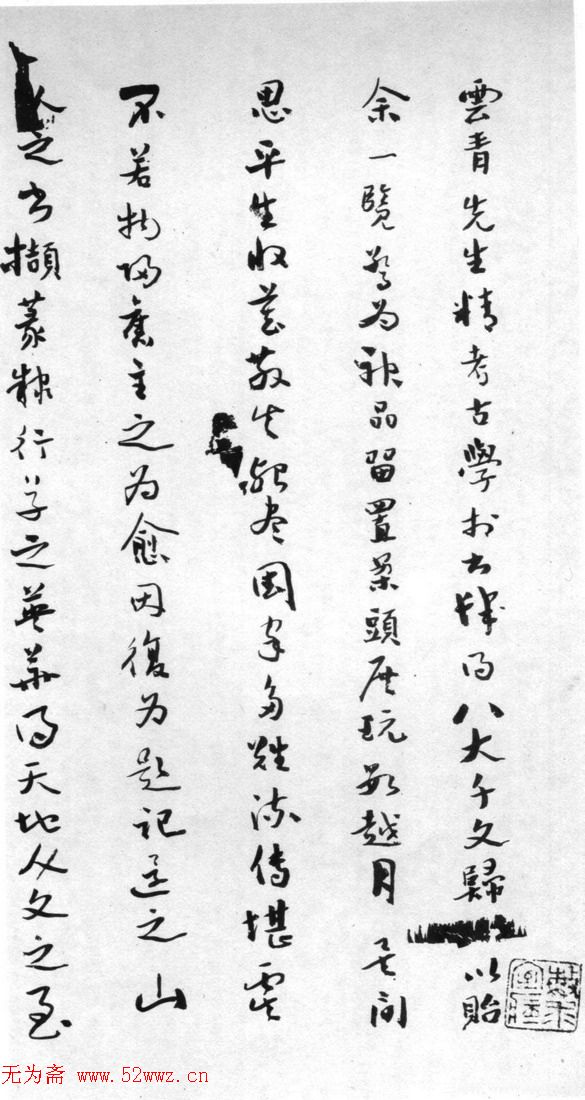 雲青先生精考古學於古肆得八大千文歸以貽
余一覽驚為神品留置案頭展玩數越月 其間
思平生收藏散失能盡國家多難流傳堪虞
不若物歸舊主之為愈因復為題記還之山
人之書擷篆隸行草之英華得天地人文之至
无为斋 www.52wwz.cn